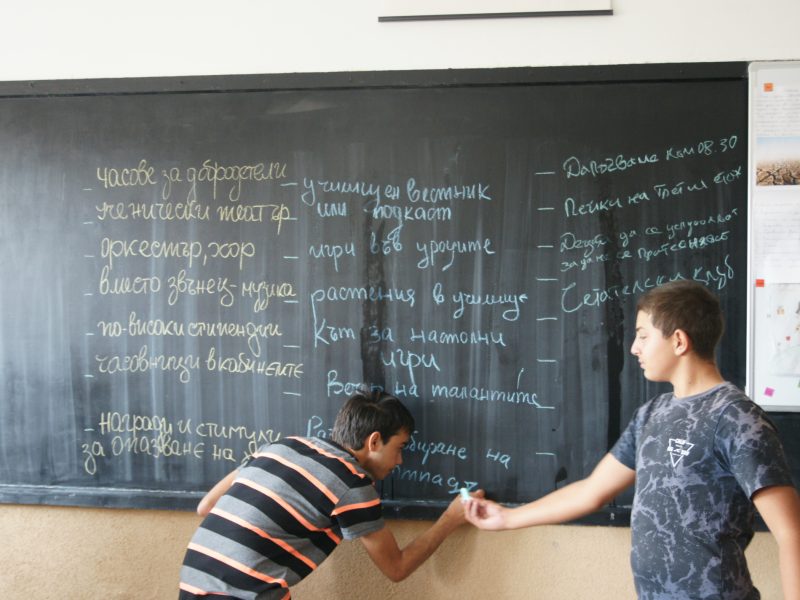 - часове за добродетели
- ученически театър
- оркестър, хор
- вместо звънец - музика
- по-високи стипендии
- часовници в кабинете
- награди и стимули
за опазване на
- училищен вестник
- или подкаст
- игри във уроците
- растения в училище
Кът за настолни
игри
- Вечер на талантите
на
отпадъ
- към 08.30
- Пейки на третия етаж
- да се
за да не се
- клуб